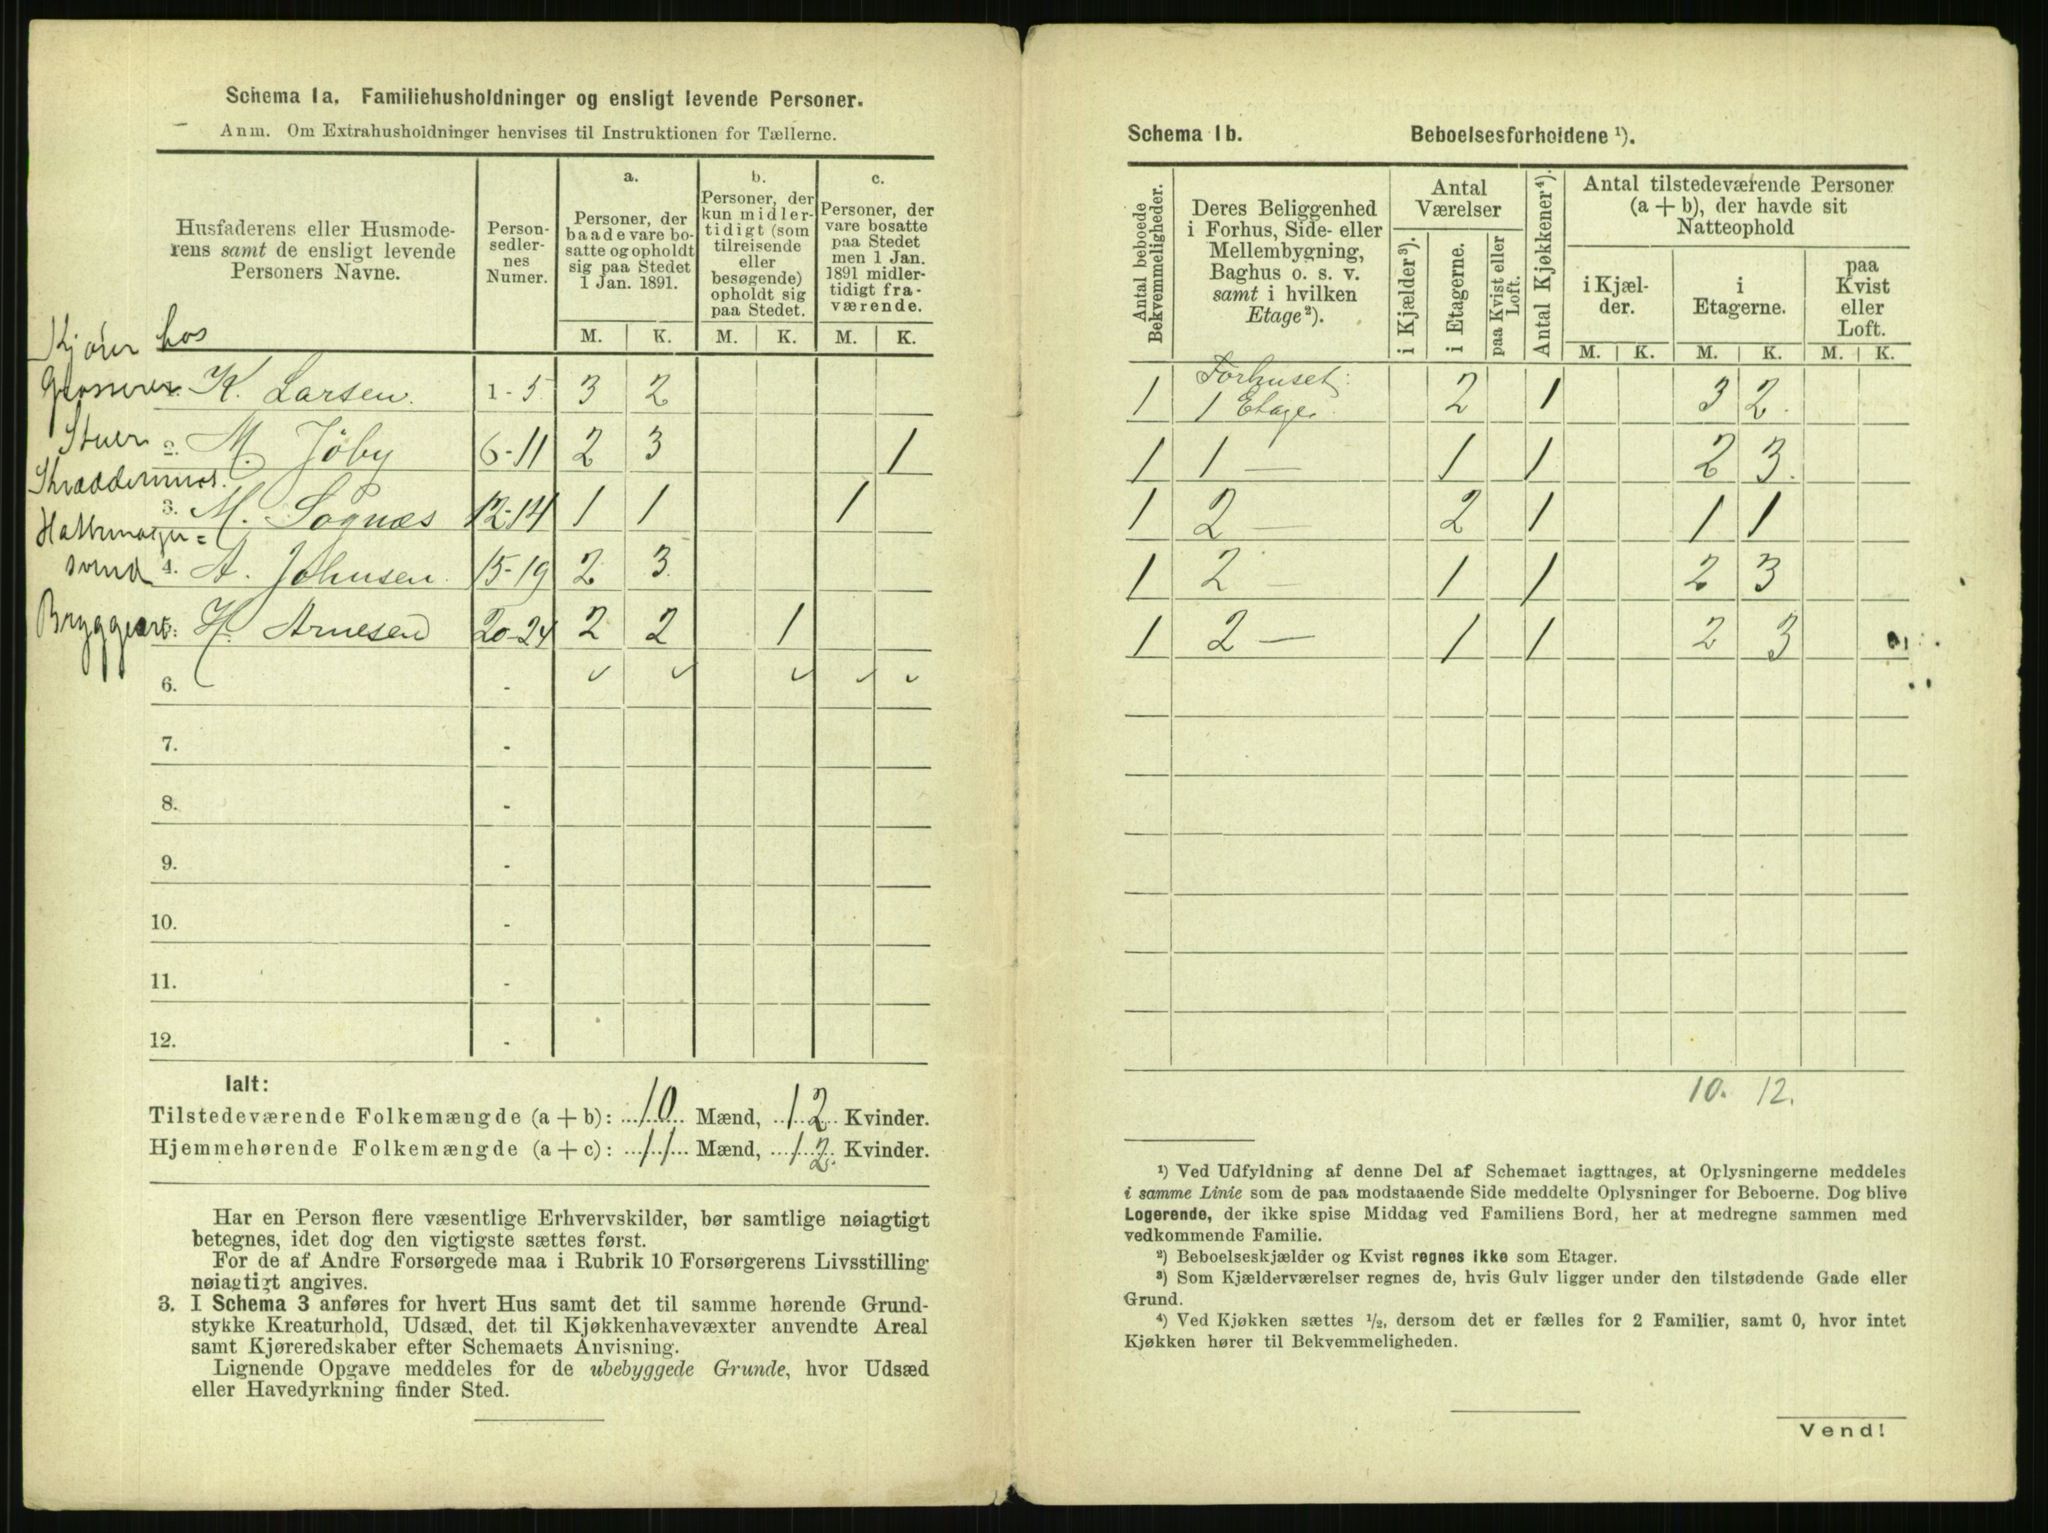 Schema 1a. Familiehusholdninger og ensligt levende Personer.
Anm. Om Extrahusholdninger henvises til Instruktionen for Tællerne.
Husfaderens eller Husmode-
rens samt de ensligt levende
Personers Navne.
Person-
sedler-
nes
Numer.
a.
Personer, der
baade vare bo-
satte og opholdt
sig paa Stedet
1 Jan. 1891.
b.
Personer, der
kun midler-
tidigt (som
tilreisende
eller
besøgende)
opholdt sig
paa Stedet.
c.
Personer, der
vare bosatte
paa Stedet
men 1 Jan.
1891 midler-
tidigt fra-
værende.
M. K. M. K. M. K.
Kjører hos
Grosserer K. Larsen. 1-5 3 2
Stuer 2. M. Jöby 6-11 2 3 1
3. M. Sognæs 12-14 1 1 1
svend 4. A. Johnsen. 15-19 2 3
Bryggearb: H. Arnesen 20-24 2 2 1
6. - ✓ ✓ ✓ ✓ ✓
7. -
8. -
9. -
10. -
11. -
12. -
Ialt:
Tilstedeværende Folkemængde (a + b): 10 Mænd, 12 Kvinder.
Hjemmehørende Folkemængde (a + c): 11 Mænd, 12 Kvinder.
Har en Person flere væsentlige Erhvervskilder, bør samtlige nøiagtigt
betegnes, idet dog den vigtigste sættes først.
For de af Andre Forsørgede maa i Rubrik 10 Forsørgerens Livsstilling
nøiagtigt angives.
3. I Schema 3 anføres for hvert Hus samt det til samme hørende Grund-
stykke Kreaturhold, Udsæd, det til Kjøkkenhavevæxter anvendte Areal
samt Kjøreredskaber efter Schemaets Anvisning.
Lignende Opgave meddeles for de ubebyggede Grunde, hvor Udsæd
eller Havedyrkning finder Sted.
Schema 1b. Beboelsesforholdene ¹).
Antal beboede
Bekvemmeligheder.
Deres Beliggenhed
i Forhus, Side- eller
Mellembygning,
Baghus o. s. v.
samt i hvilken
Etage²).
Antal
Værelser
i Kjælder³).
i Etagerne.
paa Kvist eller
Loft.
Antal Kjøkkener⁴).
Antal tilstedeværende Personer
(a + b), der havde sit
Natteophold
i Kjæl-
der.
i
Etagerne.
paa
Kvist
eller
Loft.
M. K. M. K. M. K.
Forhuset:
1 1 Etage. 2 1 3 2.
1 1 — 1 1 2 3.
1 2 — 2 1 1 1
1 2 — 1 1 2 3
1 2 — 1 1 2 3
10. 12.
¹) Ved Udfyldning af denne Del af Schemaet iagttages, at Oplysningerne meddeles
i samme Linie som de paa modstaaende Side meddelte Oplysninger for Beboerne. Dog blive
Logerende, der ikke spise Middag ved Familiens Bord, her at medregne sammen med
vedkommende Familie.
²) Beboelseskjælder og Kvist regnes ikke som Etager.
³) Som Kjælderværelser regnes de, hvis Gulv ligger under den tilstødende Gade eller
Grund.
⁴) Ved Kjøkken sættes ½, dersom det er fælles for 2 Familier, samt 0, hvor intet
Kjøkken hører til Bekvemmeligheden.
Vend!